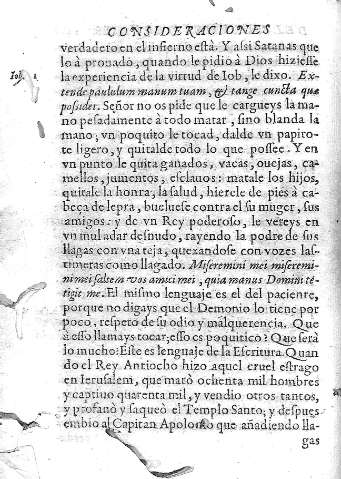 CONSIDERACIONES
verdadero en el infierno està. Y assi Satanas que
lo à prouado, quando le pidio à Dios hiziesse
Iob. 1. la experiencia de la virtud de Iob, le dixo. Ex-
tende paululum manum tuam, & tange cuncta que
posidet. Señor no os pide que le cargueys la ma
no pesadamente à todo matar, sino blanda la
mano, vn poquito le tocad, dalde vn papiro-
te ligero, y quitalde todo lo que possee. Y en
vn punto le quita ganados, vacas, ouejas, ca-
mellos, jumentos, esclauos: matale los hijos,
quitale la honra, la salud, hierele de pies à ca-
beça de lepra, bueluese contra el su muger, sus
amigos: y de vn Rey poderoso, le vereys en
vn muladar desnudo, rayendo la podre de sus
llagas con vna teja, quexandose con vozes las-
timeras como llagado. Miseremini mei miseremi-
ni mei saltem vos amici mei, quia manus Domini te-
tigit me. El mismo lenguaje es el del paciente,
porque no digays que el Demonio lo tiene por
poco, respeto de su odio y malquerencia. Que
à esso llamays tocar, esso es poquitico? Que serà
lo mucho? Este es lenguaje de la Escritura. Quan
do el Rey Antiocho hizo aquel cruel estrago
en Ierusalem, que matò ochenta mil hombres
y captiuo quarenta mil, y vendio otros tantos,
y profanò y saqueò el Templo Santo, y despues
embio al Capitan que añadiendo lla-
gas